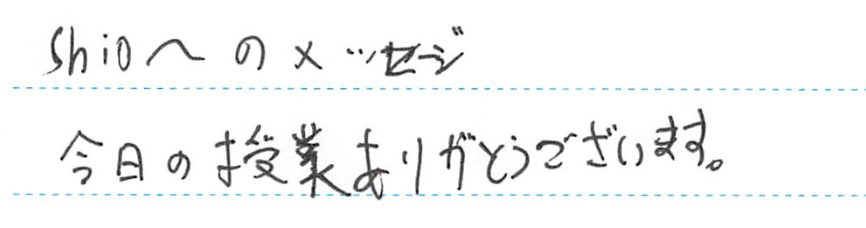 Shioへのメッセージ
今日の授業ありがとうございます。